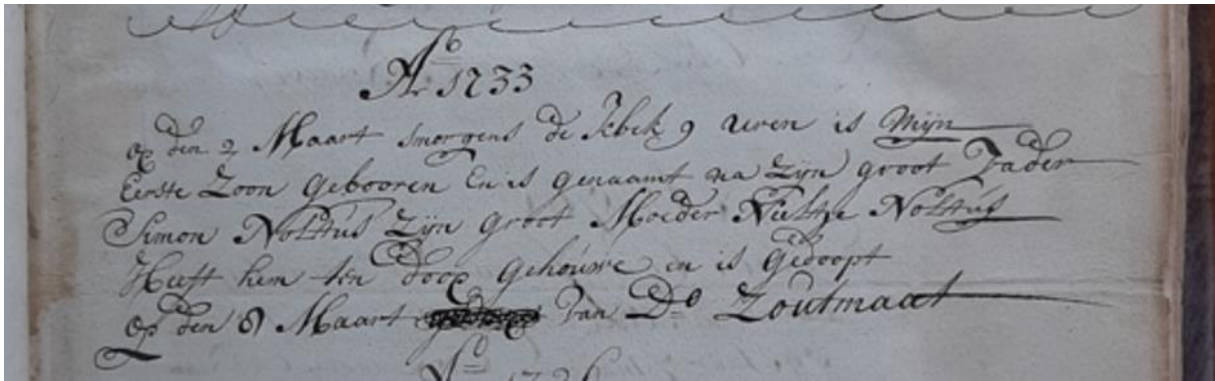 Ao 1733
op den 2 Maart smorgens de 9 uren is Mijn
Eerste Zoon Gebooren En is genaamt na Zijn groot Vader
Simon Nolttus Zijn Groot Moeder Neeltje Nolttus
Heeft hem ten doop Gehouwe en is Gedoopt
Op den 8 Maart van Do Zoutmaat
Ao